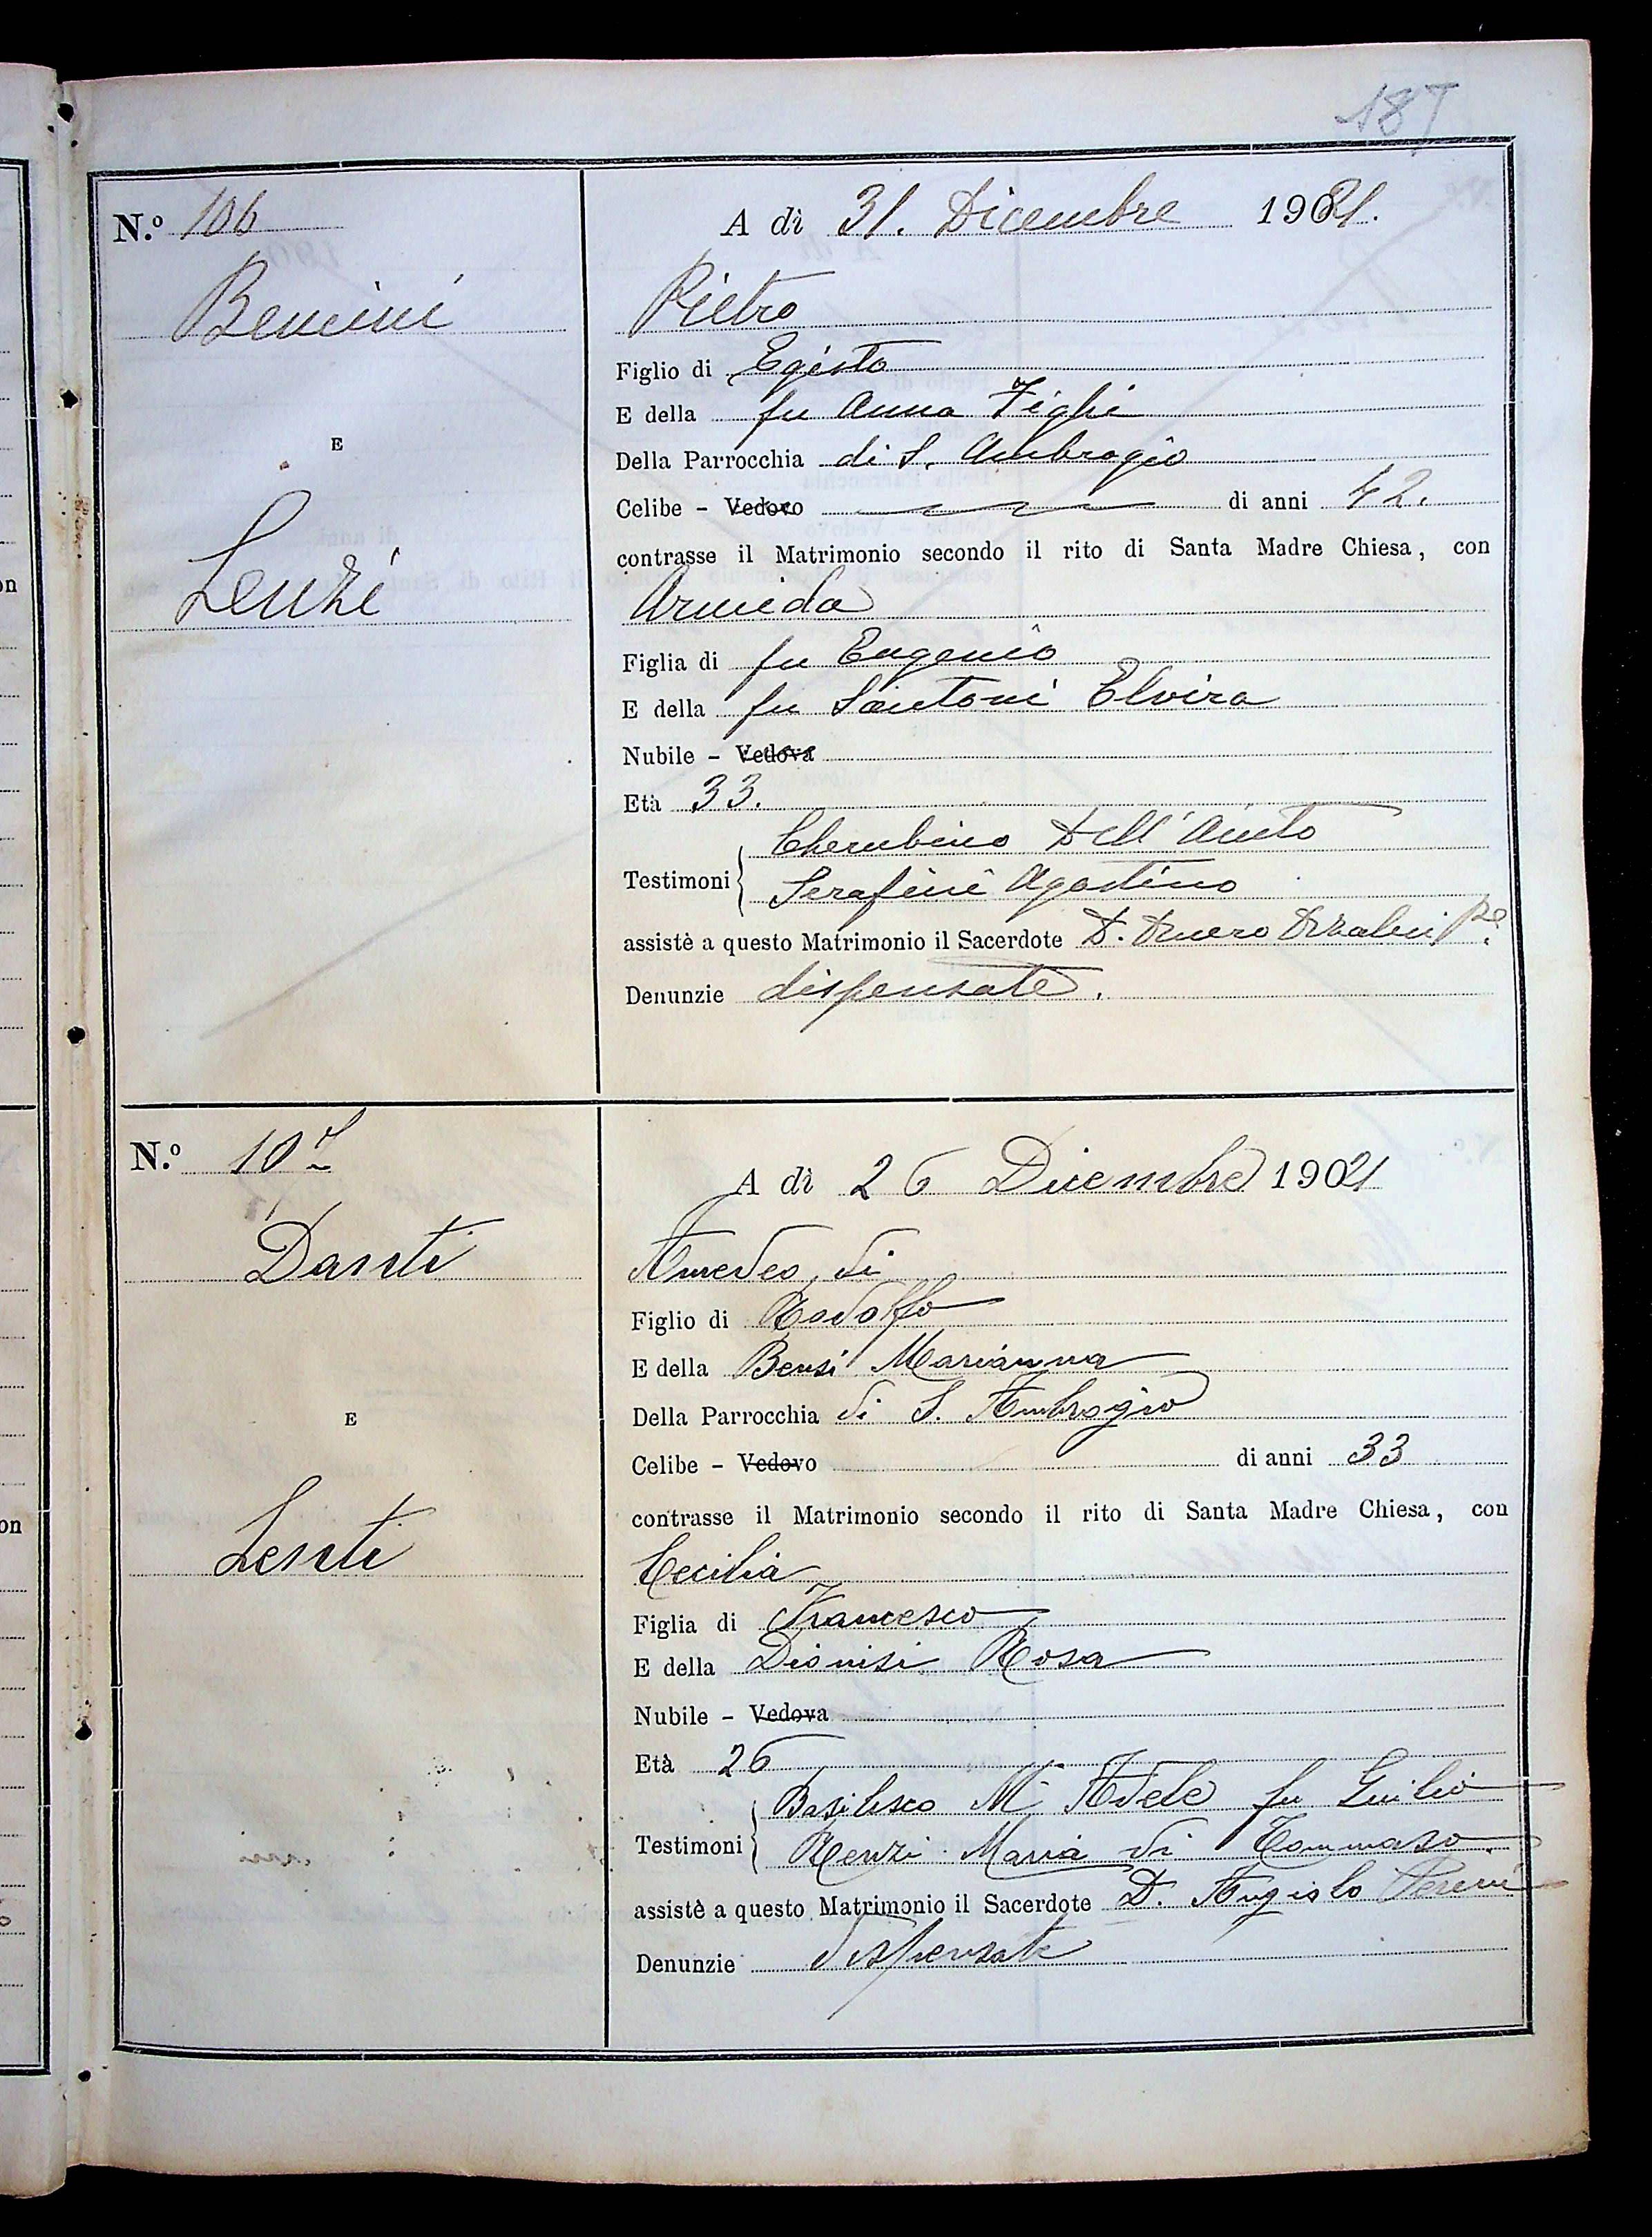 187
N.º 106
A dì 31. Dicembre 1921.
Bencini
Pietro
Figlio di Egisto
E della fu Anna Fighi
E
Della Parrocchia di S. Ambrogio
Celibe - Vedovo di anni 42.
contrasse il Matrimonio secondo il rito di Santa Madre Chiesa, con
Lenzi
Armida
Figlia di fu Eugenio
E della fu Santoni Elvira
Nubile - Vedova
Età 33.
Cherubino Dell'Aiuto
Testimoni
Serafini Agostino
assistè a questo Matrimonio il Sacerdote D.
Denunzie dispensate.
N.º 107
A dì 26 Dicembre 1921
Danti
Amedeo di
Figlio di Rodolfo
E della Bensi Marianna
Della Parrocchia di S. Ambrogio
E
Celibe - Vedovo di anni 33
contrasse il Matrimonio secondo il rito di Santa Madre Chiesa, con
Lenti
Cecilia
Figlia di Francesco
E della Dionisi Rosa
Nubile - Vedova
Età 26
Basilisco M Adele fu Giulio
Testimoni
Renzi Maria di Tommaso
assistè a questo Matrimonio il Sacerdote D. Angiolo
Denunzie dispensate